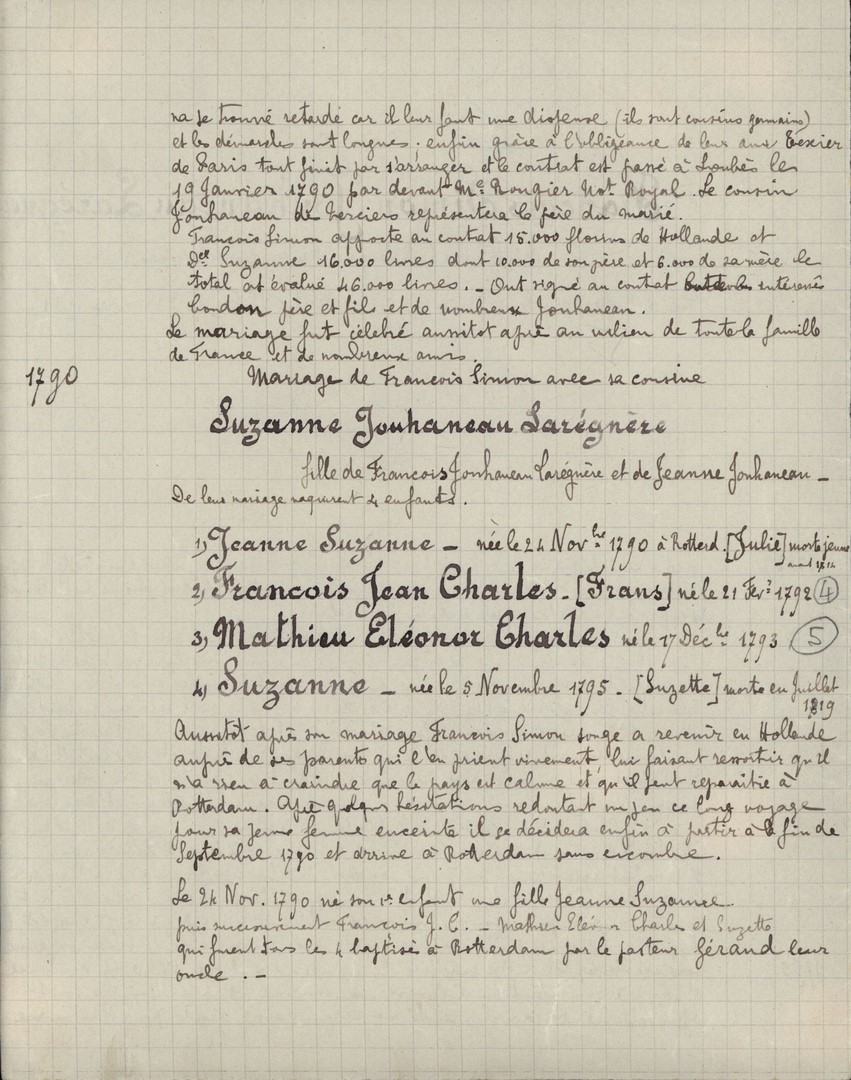 va se trouvé retardé car il leur faut une dispense (ils sont cousins germains)
et les démarches sont longues. enfin grâce à l'obligeance de leur ami Texier
de Paris tout finit par s'arranger et le contrat est passé à Loubès les
19 Janvier 1790 par devant Me Rougier Not Royal. Le cousin
Jouhaneau de Terciers représentera le père du marié.
François Simon apporte au contrat 15.000 florins de Hollande et
Delle Suzanne 16.000 livres dont 10.000 de son père et 6.000 de sa mère le
total est évalué 46.000 livres. _ Ont signé au contrat interessés
père et fils et de nombreux Jouhaneau.
Le mariage fut célébré aussitot après au milieu de toute la famille
de France et de nombreux amis.
1790
Mariage de François Simon avec sa cousine
Suzanne Jouhaneau Larégnère
fille de François Jouhaneau Larégnère et de Jeanne Jouhaneau _
De leur mariage naquirent 4 enfants.
1) Jeanne Suzanne _ née le 24 Novbre 1790 à Rotterd. [Julie] morte jeune
avant
2) Francois Jean Charles. [Frans] né le 21 Fevr 1792 (4)
3) Mathieu Eléonor Charles né le 17 Décbre 1793 (5)
4) Suzanne _ née le 5 Novembre 1795. [Suzette] morte en Juillet
1819
Aussitôt après son mariage François Simon songe a revenir en Hollande
auprès de ses parents qui l'en prient vivement, lui faisant ressortir qu'il
n'a rien à craindre que le pays est calme et qu'il peut reparaitre à
Rotterdam. Après quelques hésitations redoutant un peu ce long voyage
pour sa jeune femme enceinte il se décidera enfin à partir à la fin de
Septembre 1790 et arrive à Rotterdam sans encombre.
Le 24 Nov. 1790 né son 1er enfant une fille Jeanne Suzanne
puis successivement François J. C. _ Mathieu Eléonor Charles et Suzette
qui furent tous les 4 baptisés à Rotterdam par le pasteur Gérand leur
oncle. _